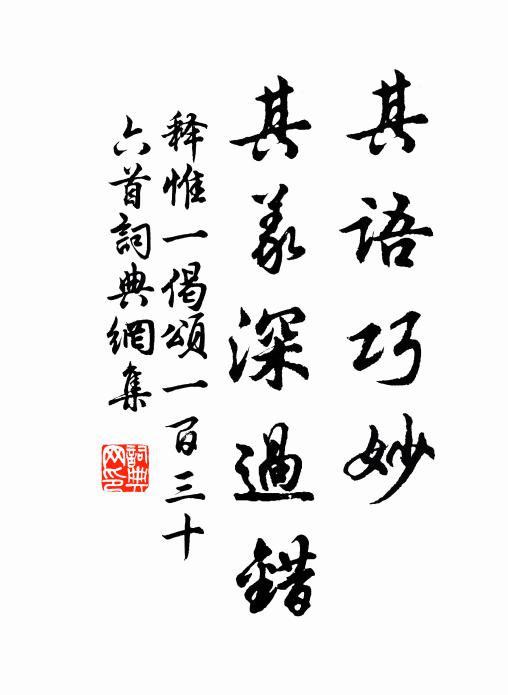 其語巧妙
其義深過錯
释惟一偈頌一百三十
六首詞典網集
詞典网印